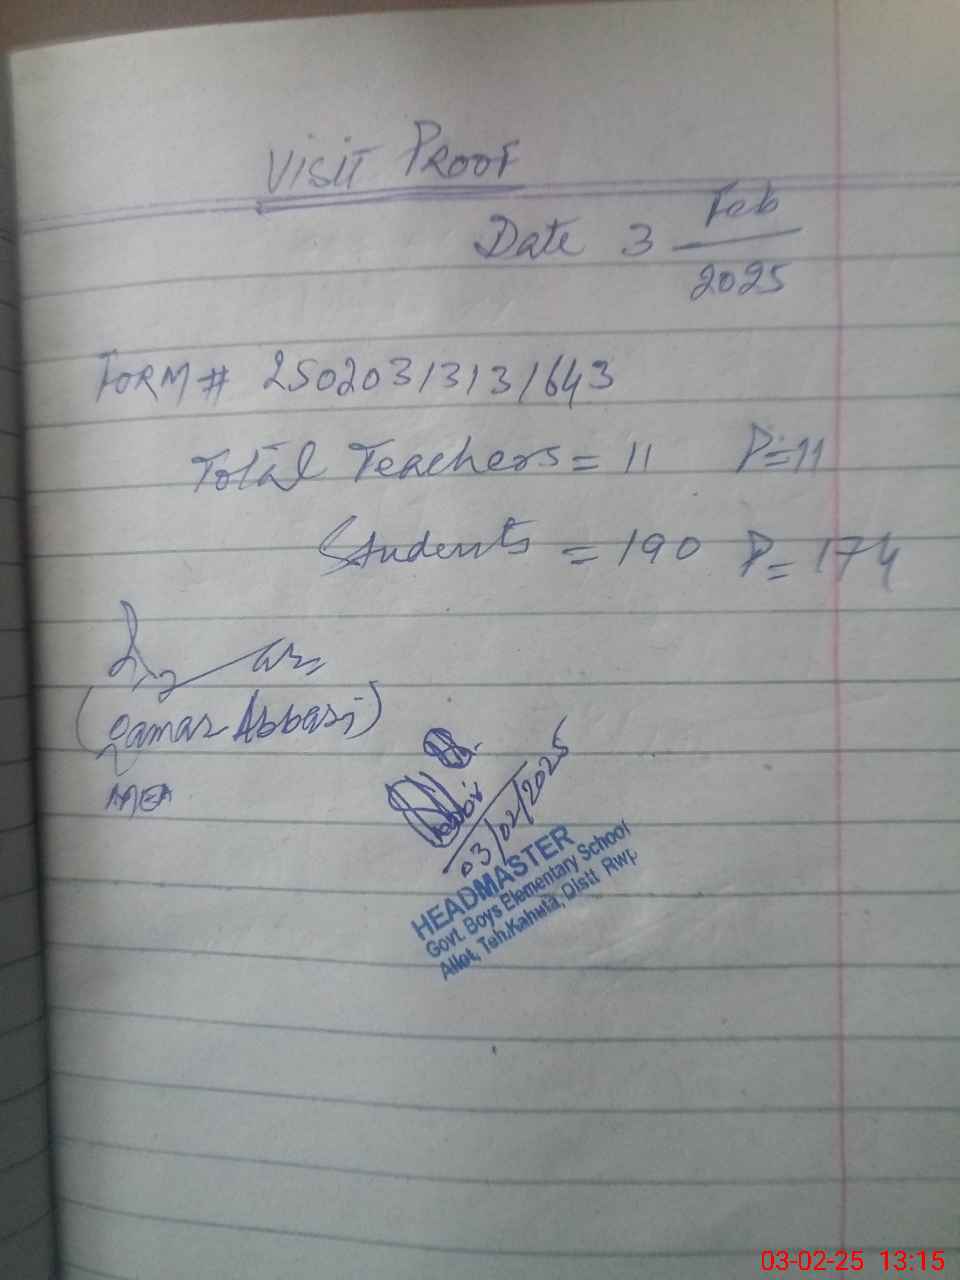 VISIT PROOF
Date 3 Feb
2025
FORM # 25020313131643
Total Teachers = 11 P=11
Students = 190 P= 174
(Qamar Abbasi)
MEA
03/02/2025
HEADMASTER
Govt. Boys Elementary School
Allot, Teh.Kahuta, Distt Rwp
03-02-25 13:15